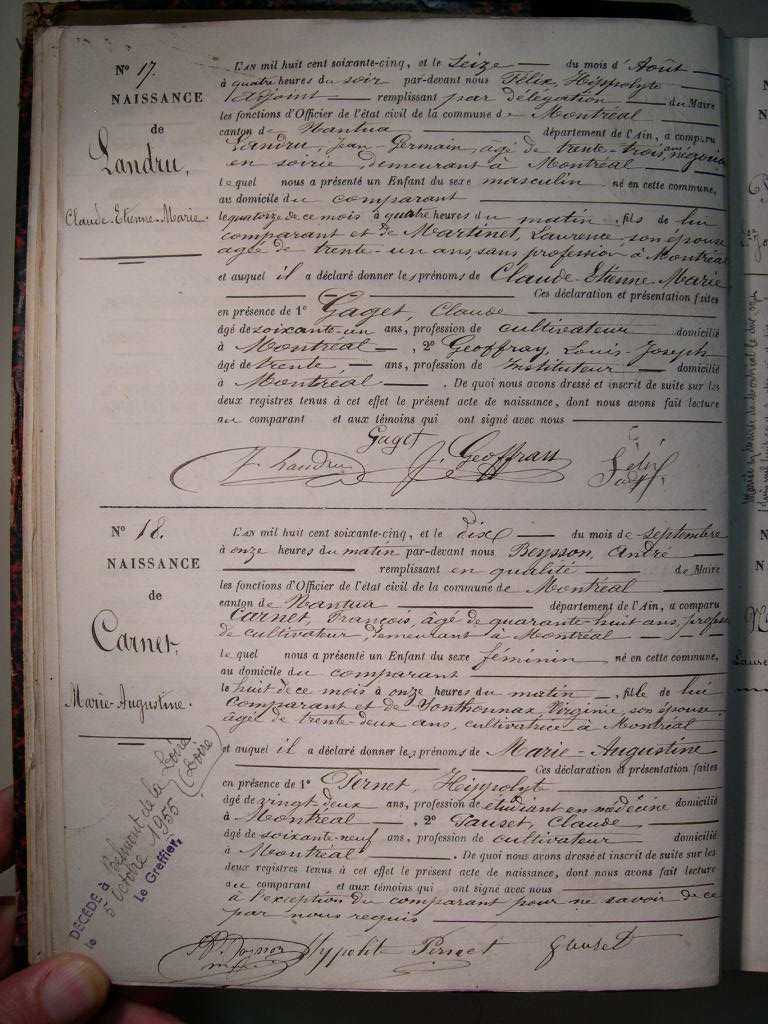 N° 17.
NAISSANCE
de
Landru,
Claude-Etienne-Marie.
L'AN mil huit cent soixante-cinq, et le Seize du mois d'Août
à quatre heures du soir par-devant nous Félix, Hippolyte
Adjoint remplissant par délégation du Maire
les fonctions d'Officier de l'état civil de la commune de Montréal
canton de Nantua département de l'Ain, a comparu
Landru, Jean-Germain, âgé de trente-trois ans, négociant
en soirie demeurant à Montréal
lequel nous a présenté un Enfant du sexe masculin né en cette commune,
au domicile du comparant
le quatorze de ce mois à quatre heures du matin, fils de lui
comparant et de Martinet, Laurence, son épouse
agée de trente-un ans, sans profession à Montréal
et auquel il a déclaré donner les prénoms de Claude-Etienne-Marie
Ces déclaration et présentation faites
en présence de 1° Gaget, Claude
âgé de soixante-un ans, profession de cultivateur domicilié
à Montréal, 2° Geoffray, Louis-Joseph
âgé de trente ans, profession de Instituteur domicilié
à Montréal. De quoi nous avons dressé et inscrit de suite sur les
deux registres tenus à cet effet le présent acte de naissance, dont nous avons fait lecture
au comparant et aux témoins qui ont signé avec nous
Gaget
J. Landru J. Geoffray Félix
N° 18.
NAISSANCE
de
Carnet,
Marie-Augustine.
L'AN mil huit cent soixante-cinq, et le dix du mois de septembre
à onze heures du matin par-devant nous Beysson, André
remplissant en qualité de Maire
les fonctions d'Officier de l'état civil de la commune de Montréal
canton de Nantua département de l'Ain, a comparu
Carnet, François, âgé de quarante-huit ans, profession
de cultivateur, demeurant à Montréal
lequel nous a présenté un Enfant du sexe féminin né en cette commune,
au domicile du comparant
le huit de ce mois à onze heures du matin, fille de lui
comparant et de Sonthonnax, Virginie, son épouse
âgée de trente-deux ans, cultivatrice à Montréal
et auquel il a déclaré donner les prénoms de Marie-Augustine
Ces déclaration et présentation faites
en présence de 1° Pernet, Hippolyte
âgé de vingt-deux ans, profession de étudiant en médecine domicilié
à Montréal, 2° Pauset, Claude
âgé de soixante-neuf ans, profession de cultivateur domicilié
à Montréal. De quoi nous avons dressé et inscrit de suite sur les
deux registres tenus à cet effet le présent acte de naissance, dont nous avons fait lecture
au comparant et aux témoins qui ont signé avec nous
à l'exception du comparant pour ne savoir de ce
par nous requis
Hypolite Pernet
DÉCÉDÉ à Belmont de la Loire
(Loire)
le 5 Octobre 1955
Le Greffier,